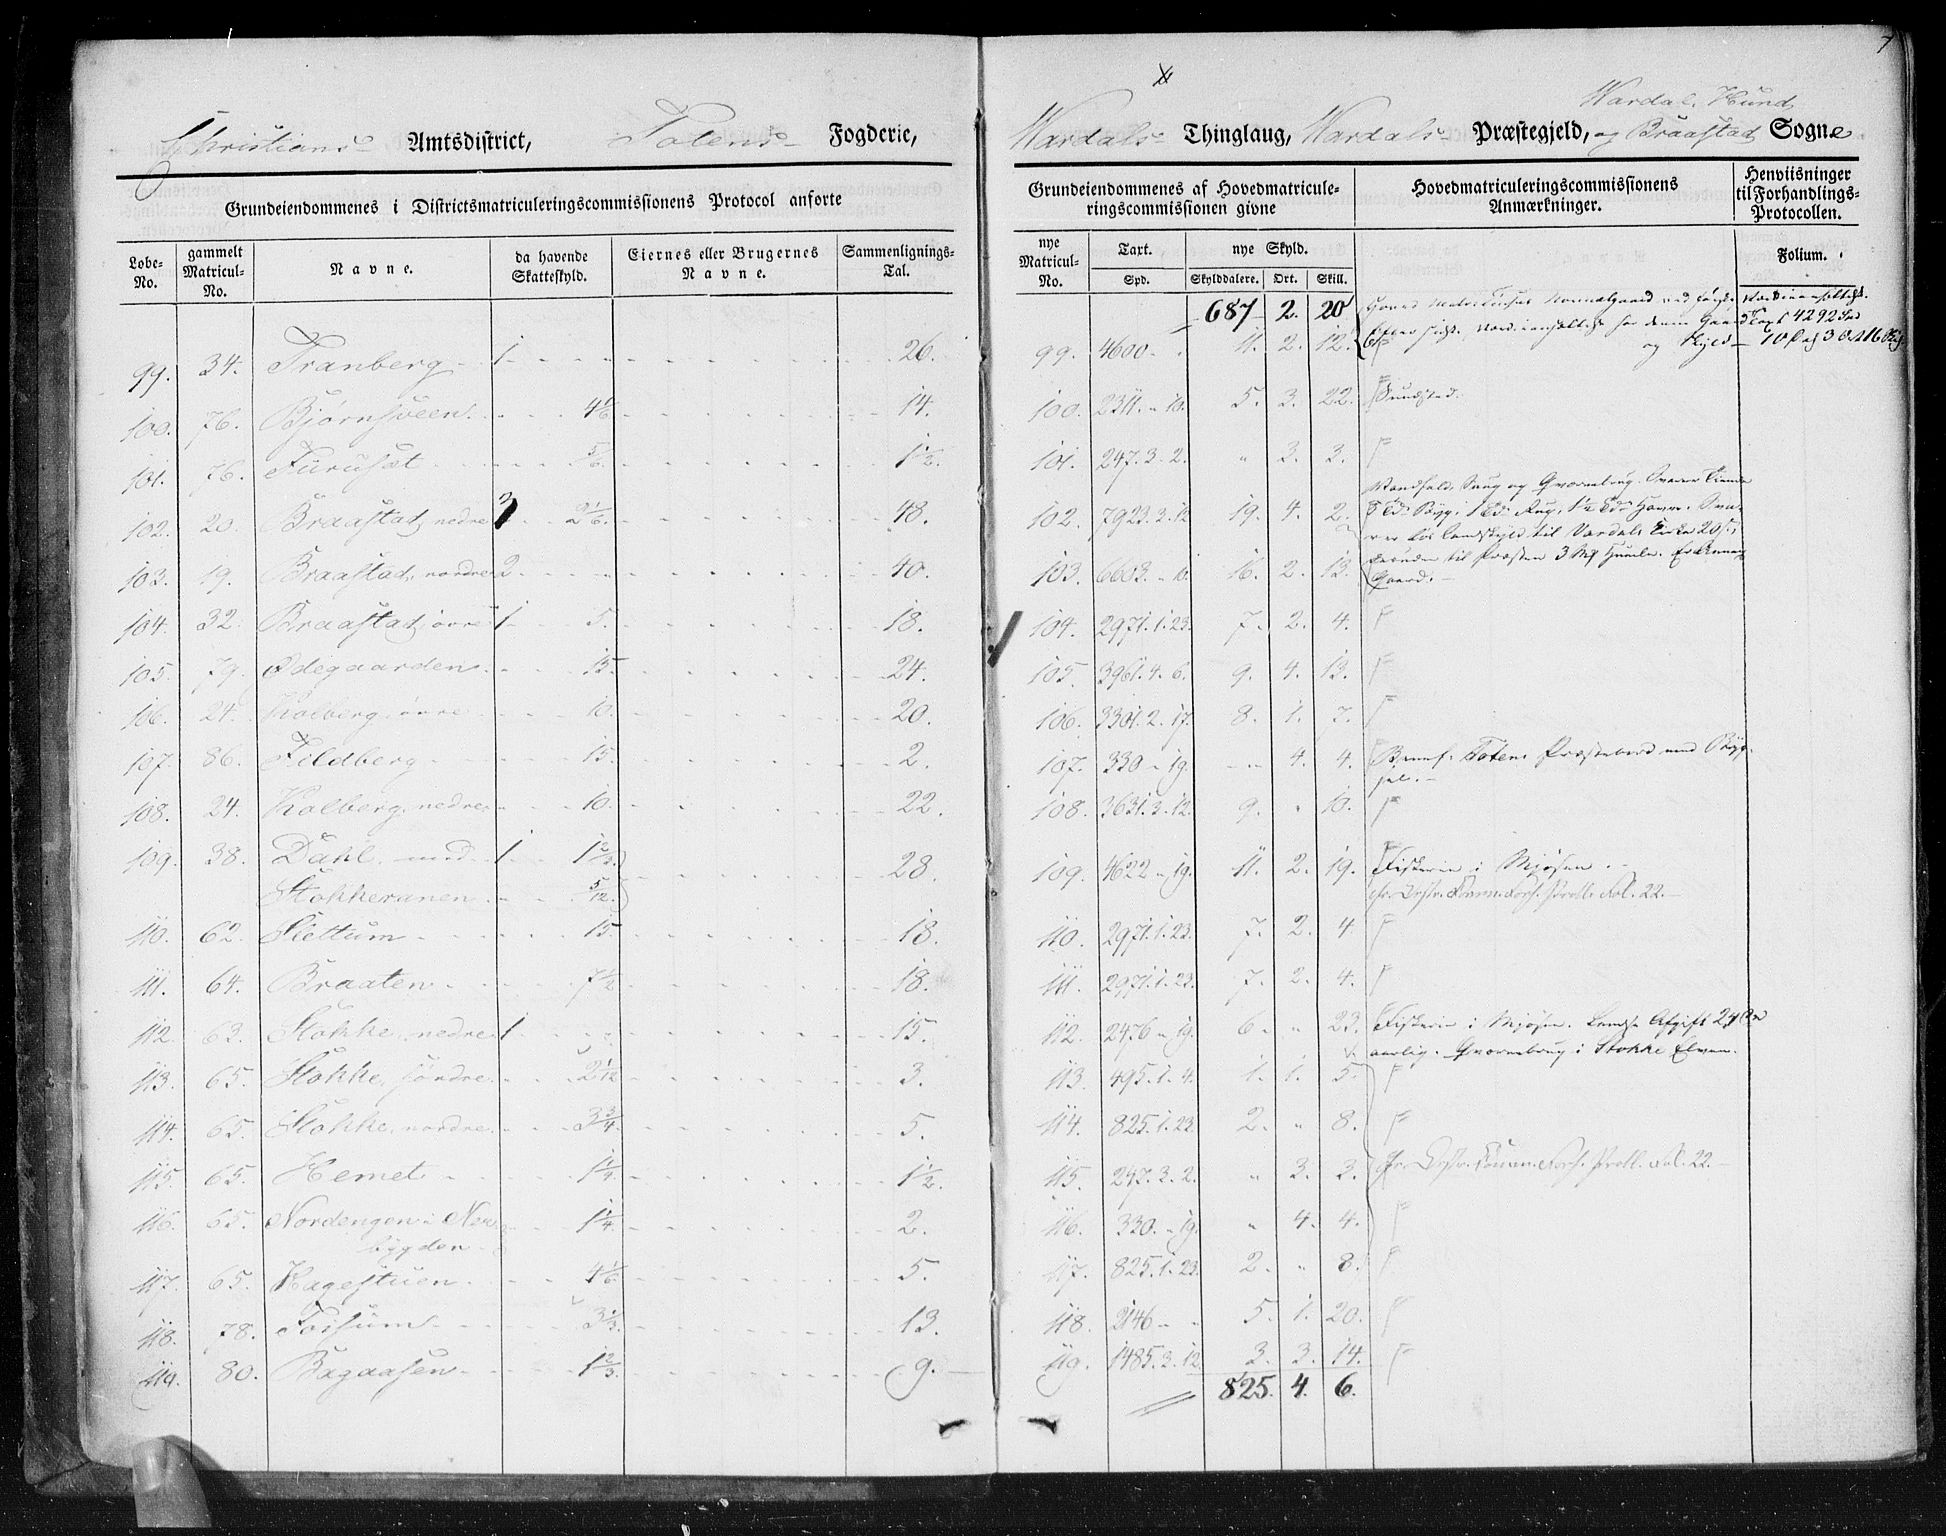 7
Wardal, Hund,
Christians Amtsdistrict, Totens Fogderie,
Wardals Thinglaug, Wardals Præstegjeld, og Braastad Sogne
Grundeiendommenes i Districtsmatriculeringscommissionens Protocol anførte
Grundeiendommenes af Hovedmatriculeringscommissionen givne
Hovedmatriculeringscommissionens Anmærkninger.
Henviisninger til Forhandlings-Protocollen.
Løbe-No. gammelt Matricul-No. Navne. da havende Skatteskyld. Eiernes eller Brugernes Navne. Sammenlignings-Tal.
nye Matricul-No. Taxt. Spd. nye Skyld. Skylddalere. Ort. Skill. Folium.
687 2. 20
99. 34. Tranberg 1 26. 99. 4600 11. 2. 12.
100. 76. Bjørnsveen 4 1/6 14. 100. 2311. " 10. 5. 3. 22. Sundstad.
101. 76. Furuset 5/6 1 1/2. 101. 247. 3. 2. " 3. 3.
102. 20. Braastad, nedre 3 2 1/6. 48. 102. 7923. 2. 12 19. 4. 2.
103. 19. Braastad, nordre 2 40. 103. 6603. " 10. 16. 2. 13.
104. 32. Braastad, øvre 1 5. 18. 104. 2971. 1. 23. 7. 2. 4.
105. 79. Ødegaarden 15. 24. 105. 3961. 4. 6. 9. 4. 13.
106. 24. Kolberg, øvre 10. 20. 106. 3301. 2. 17. 8. 1. 7.
107. 86. Fildberg 15. 2. 107. 330 " 19. " 4. 4. Benef. Totens Præstebord med Byg-
sel.
108. 24. Kolberg, nedre 10. 22. 108. 3631. 3. 12. 9. " 10.
109. 38. Dahl, med 1 1 2/3. 28. 109. 4622 " 19. 11. 2. 19. Fiskerie i Mjøsen.
Stokkeranen 5/12. Fol. 22.
110. 62. Slettum 15. 18. 110. 2971. 1. 23. 7. 2. 4
111. 64. Braaten 7 1/2 18. 111. 2971. 1. 23. 7. 2. 4.
112. 63. Stokke, nedre 1 15. 112. 2476 " 19. 6. " 23. Fiskerie i Mjøsen. Afgift 24
aarlig. Qvernebrug i Stokke Elven.
113. 65. Stokke, søndre 2 1/12 3. 113. 495. 1. 4. 1. 1. 5.
114. 65. Stokke, nordre 3 3/4. 5. 114. 825. 1. 23. 2. " 8.
115. 65. Hemet 1 1/4. 1 1/2. 115. 247. 3. 2. " 3. 3. Fol. 22.
116. 65. Nordengen i Nee 1 1/4. 2. 116. 330. " 19. " 4. 4.
bygden
117. 65. Hagestuen 4 1/6 5. 117. 825. 1. 23. 2. " 8.
118. 78. Fossum 3 1/3. 13. 118. 2146 5. 1. 20.
119. 80. Bagaasen 1 2/3. 9. 119. 1485. 3. 12. 3. 3. 14.
825. 4. 6.